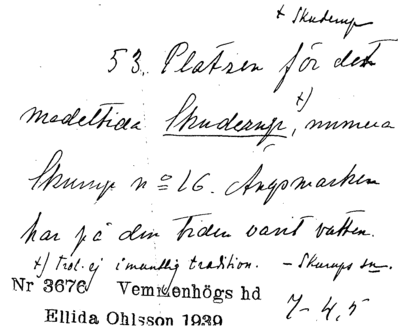 + Skuderup
53. Platsen för den
medeltida Skuderup, +) numera
Skurup nº 26. Ängsmarken
har på den tiden varit vatten.
+) Trol. ej i muntlig tradition. – Skurups sn.
Nr 3676 Vemmenhögs hd
Ellida Ohlsson 1939
7- 4,5